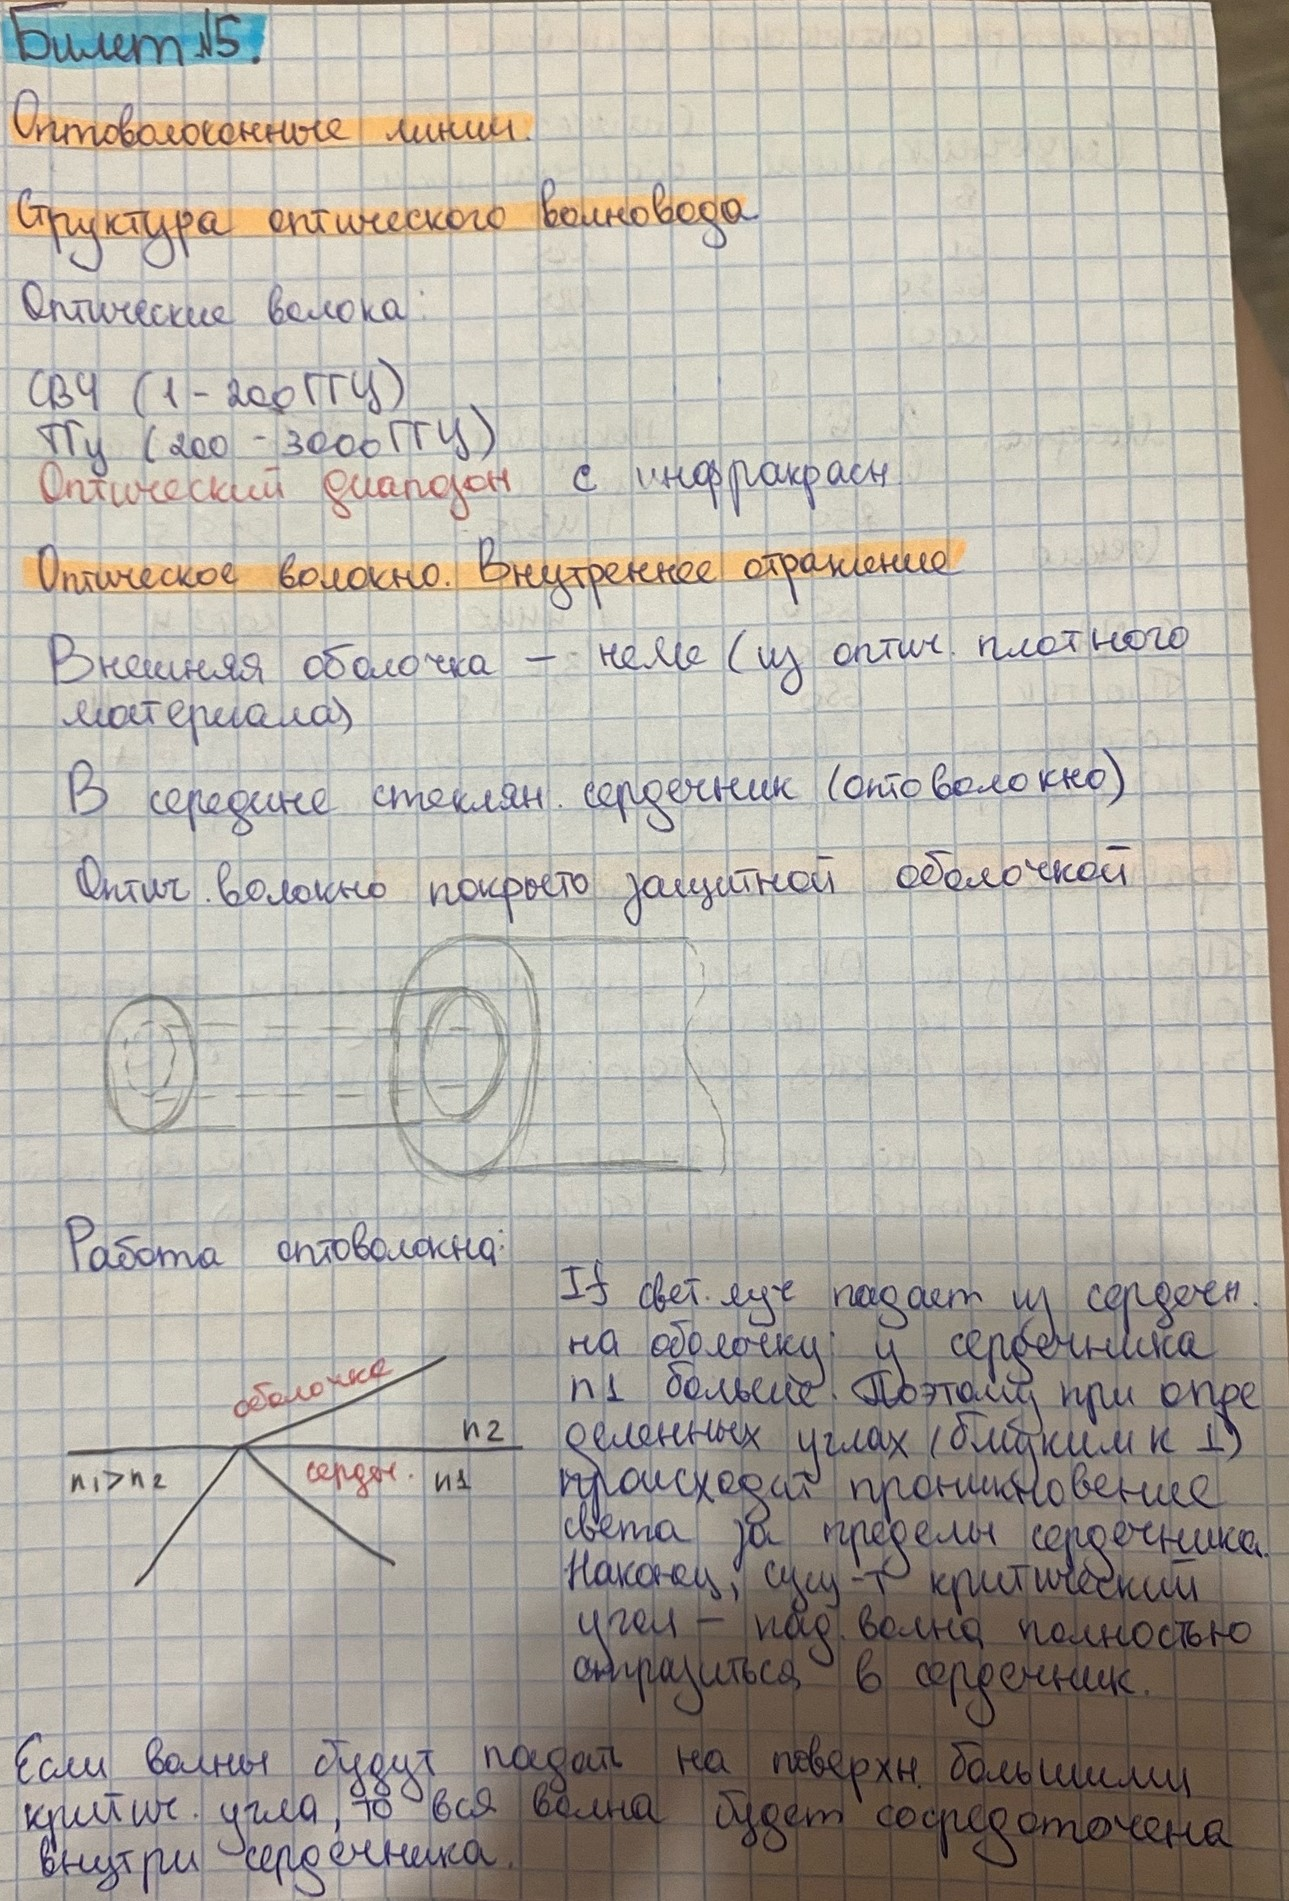 Билет №5.
Оптоволоконные линии.
Структура оптического волновода
Оптические волока:
СВЧ (1 - 200 ГГЦ)
ТГц (200 - 3000 ГГЦ)
Оптический диапазон с инфракрасн.
Оптическое волокно. Внутреннее отражение
Внешняя оболочка – (из оптич. плотного
материала)
В середине стеклян. сердечник (оптоволокно)
Оптич. волокно покрыто защитной оболочкой
Работа оптоволокна:
If свет. луч падает из сердечн.
на оболочку: у сердечника
n1 больше. Поэтому при опре
деленных углах (близким к ⊥)
происходит проникновение
света за пределы сердечника.
Наконец, сущ-т критический
угол – пад. волна полностью
отразиться в сердечник.
оболочка
n2
n1>n2
сердеч.
n1
Если волны будут падать на поверхн. большими
критич. угла, то вся волна будет сосредоточена
внутри сердечника.